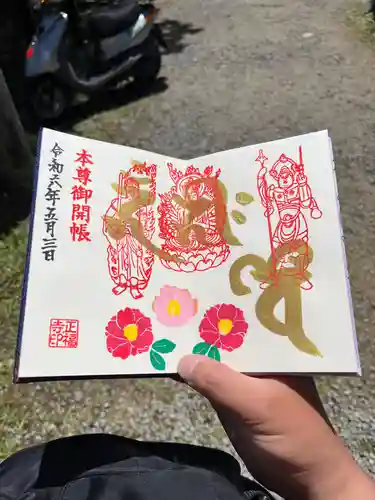 本尊御開帳
令和六年五月三日
正福
寺印